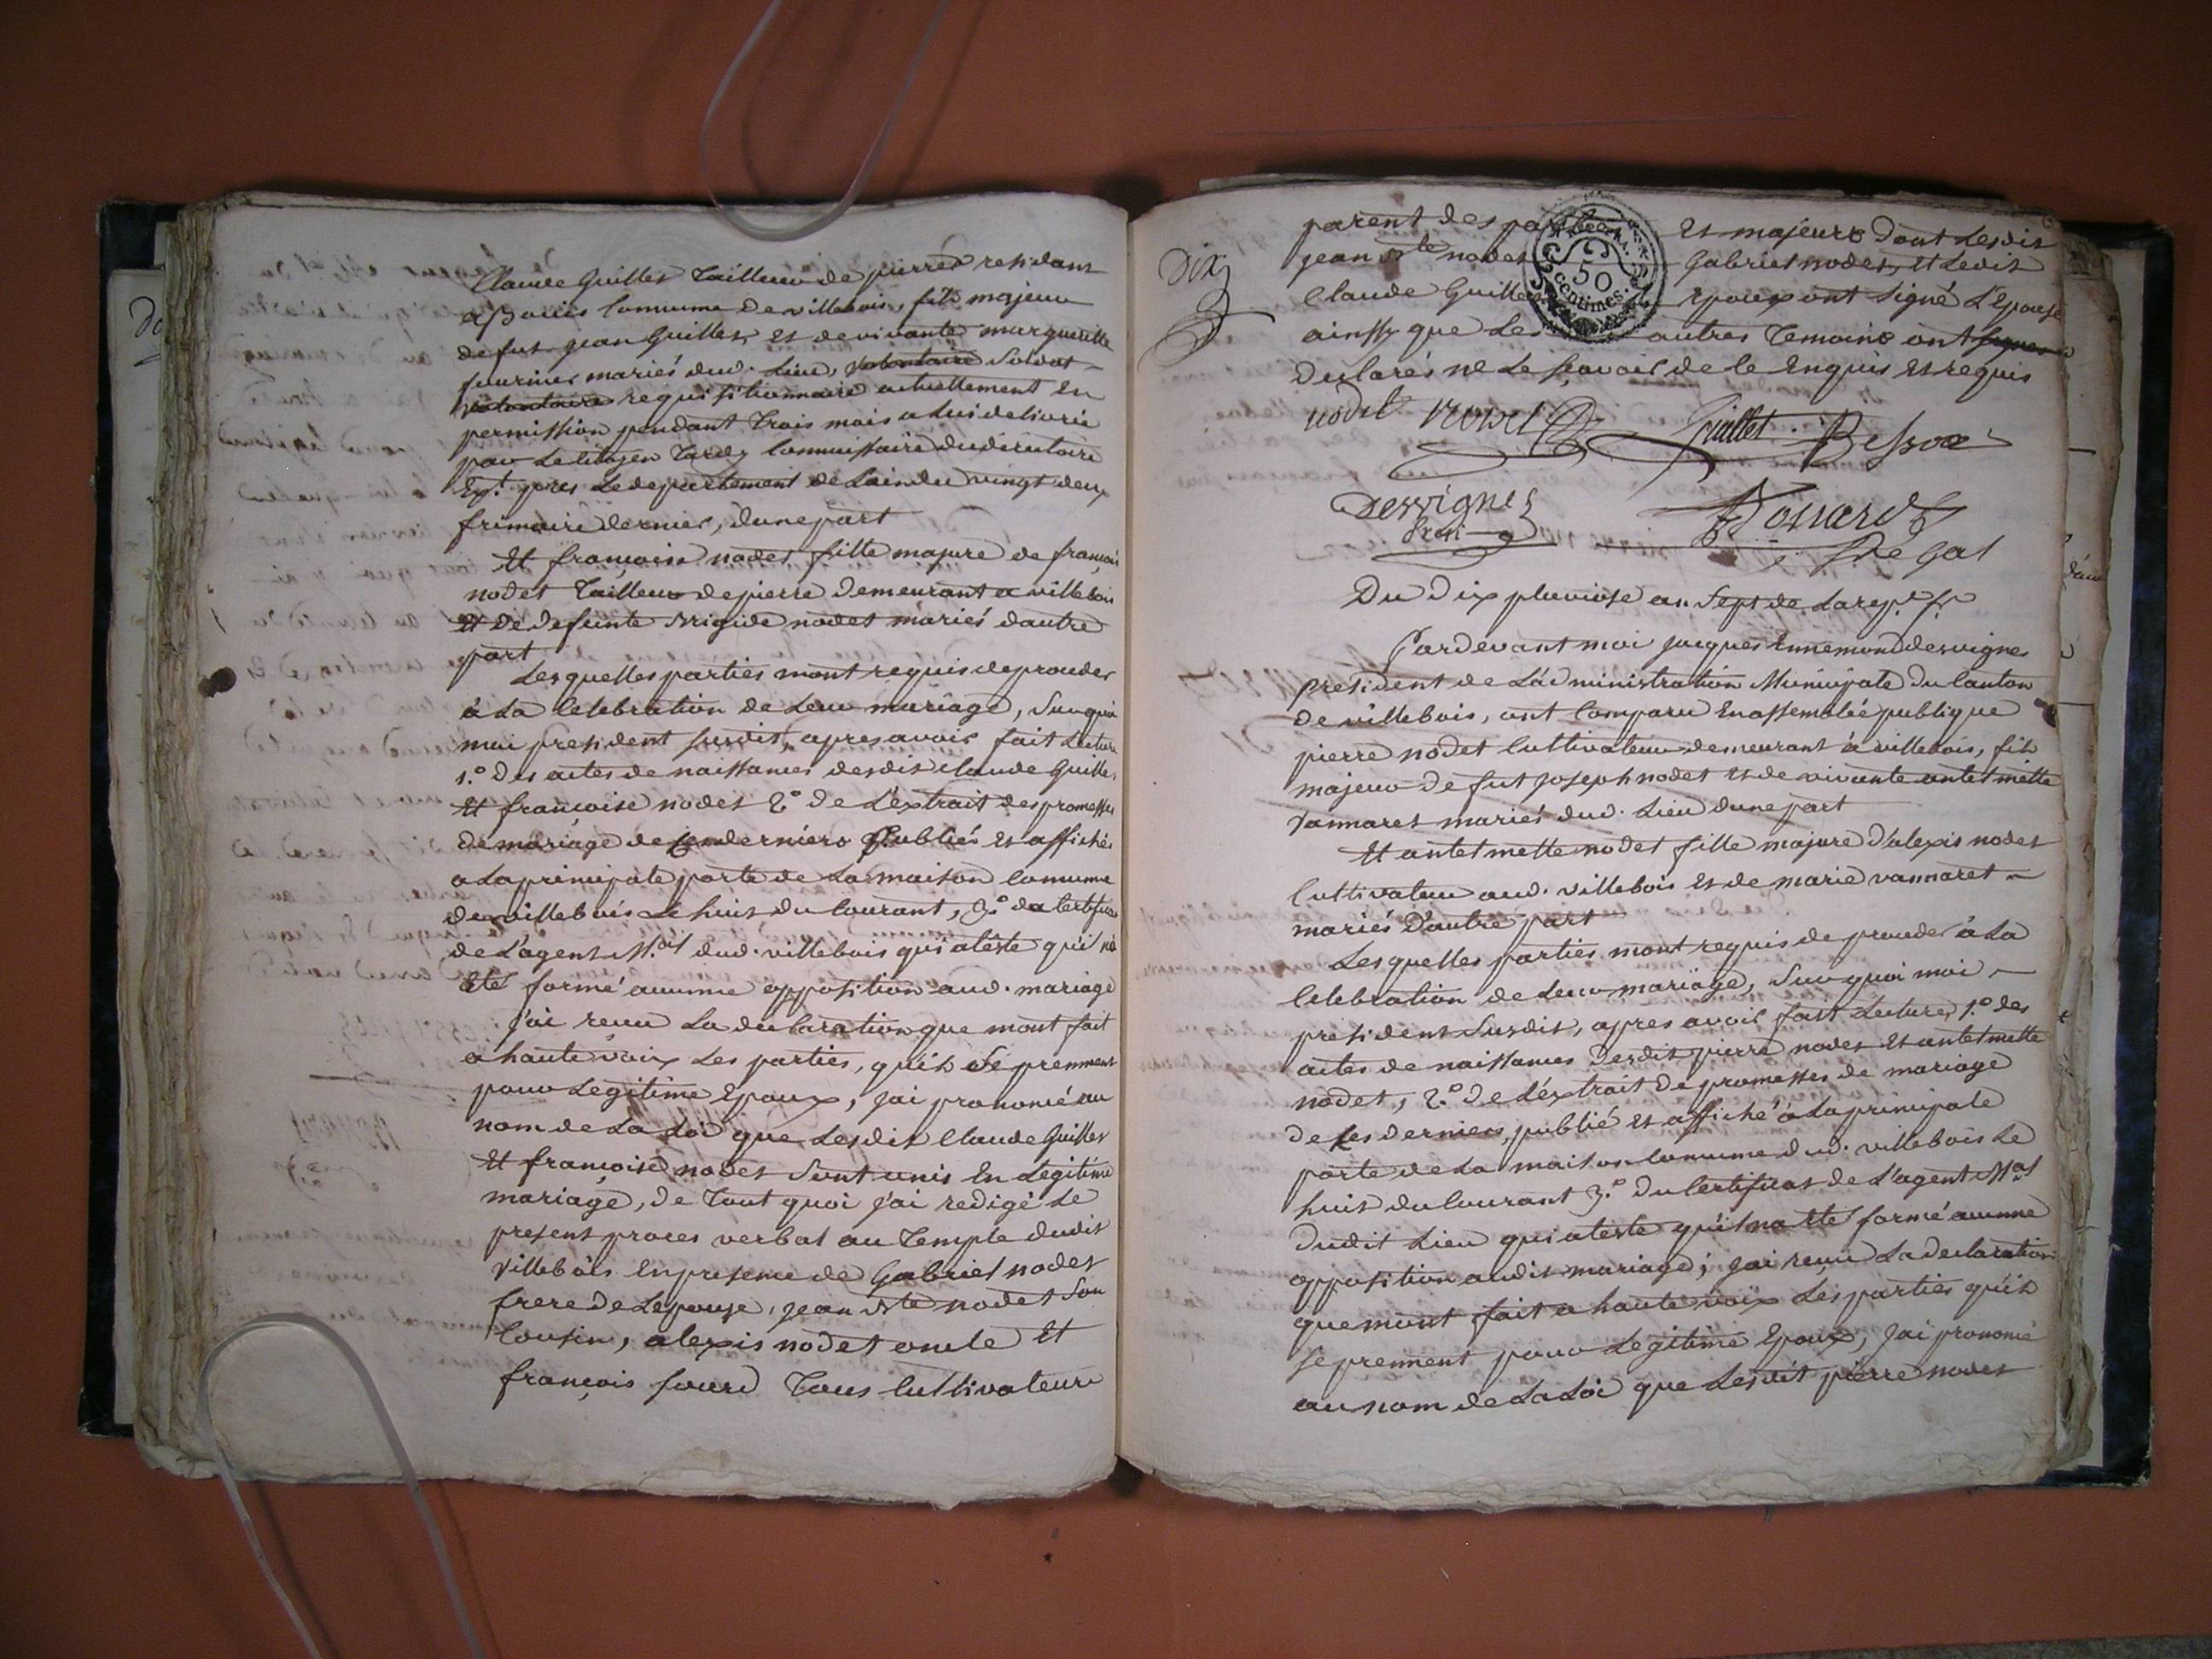 Claude Guillet Tailleur de pierres residant
a Bouis Commune de villebois, fils majeur
de fut jean Guillet et de vivante marguerite
mariés dud. Lieu, volontaire Soldat
volontaire requisitionnaire actuellement En
permission pendant Trois mois a Lui delivrée
par Le Citoyen Tardy Commissaire du directoire
Ex.f pres Le departement de Lain du vingt deux
frimaire dernier, dune part
Et françoise nodet fille majure de françois
nodet Tailleur de pierre demeurant a villebois
Et de defeinte Brigide nodet mariés dautre
part
Les quelles parties mont requis de proceder
à La Celebration de Leur mariage, Sur quoi
moi president susdit, apres avoir fait Lecture
1.° des actes de naissances desdit Claude Guillet
Et françoise nodet 2.° de L'éxtrait des promesses
de mariage de ces derniers Publiés et affichés
a La principale porte de La maison Commune
de villebois Le huit du Courant, 3.° du Certificat
de L'agent M.al dud. villebois qui atèste qu'il n'a
Eté formé aucunne opposition aud. mariage
J'ai recu La declaration que mont fait
a haute voix Les parties, qu'ils Se prennent
pour Legitime Epoux, jai prononcé au
nom de La Loi que Lesdit Claude Guillet
Et françoise nodet Sont unis En Légitime
mariage, de Tout quoi j'ai redigé Le
present proces verbal au Temple dudit
villebois En presence de Gabriel nodet
frere de Lepouse, jean Bte nodet Son
Cousin, alexis nodet oncle Et
françois sourd Tous Cultivateurs
Dix
parent des parties Et majeurs dont Lesdit
50
Centimes
jean Bte nodet Gabriel nodet, et Ledit
Claude Guillet Epoux ont Signé L'Epouse
ainssy que Les autres Temoins ont signer
declarés ne Le sçavoir de le Enquis et requis
nodet nodet Guillet Bessod
Desvignes
Presi
Bossard
Du Dix pluviose an Sept de La rep.e fr.
Pardevant moi jacques Ennemond desvignes
president de L'administration Municipale du Canton
de villebois, ont Comparu En assemblée publique
pierre nodet Cultivateur demeurant à villebois, fils
majeur de fut joseph nodet et de vivante antelmette
vannaret mariés dud. Lieu dune part
Et antelmette nodet fille majure d'alexis nodet
Cultivateur aud. villebois et de marie vannaret
mariés D'autre part
Les quelles parties mont requis de proceder à La
Celebration de Leur mariage, Sur quoi moi
president Susdit, apres avoir fait Lecture, 1.° des
actes de naissances desdit pierre nodet Et antelmette
nodet, 2.° de L'éxtrait de promesses de mariage
de ces derniers, publié et affiché à La principale
porte de La maison Commune dud. villebois Le
huit du Courant 3.° du Certificat de L'agent M.al
dudit Lieu qui atèste qu'il na Eté formé aucunne
opposition audit mariage; jai recu La declaration
que mont fait a haute voix Les parties qu'ils
se prennent pour Legitime Epoux, jai prononcé
au nom de La Loi que Lesdit pierre nodet